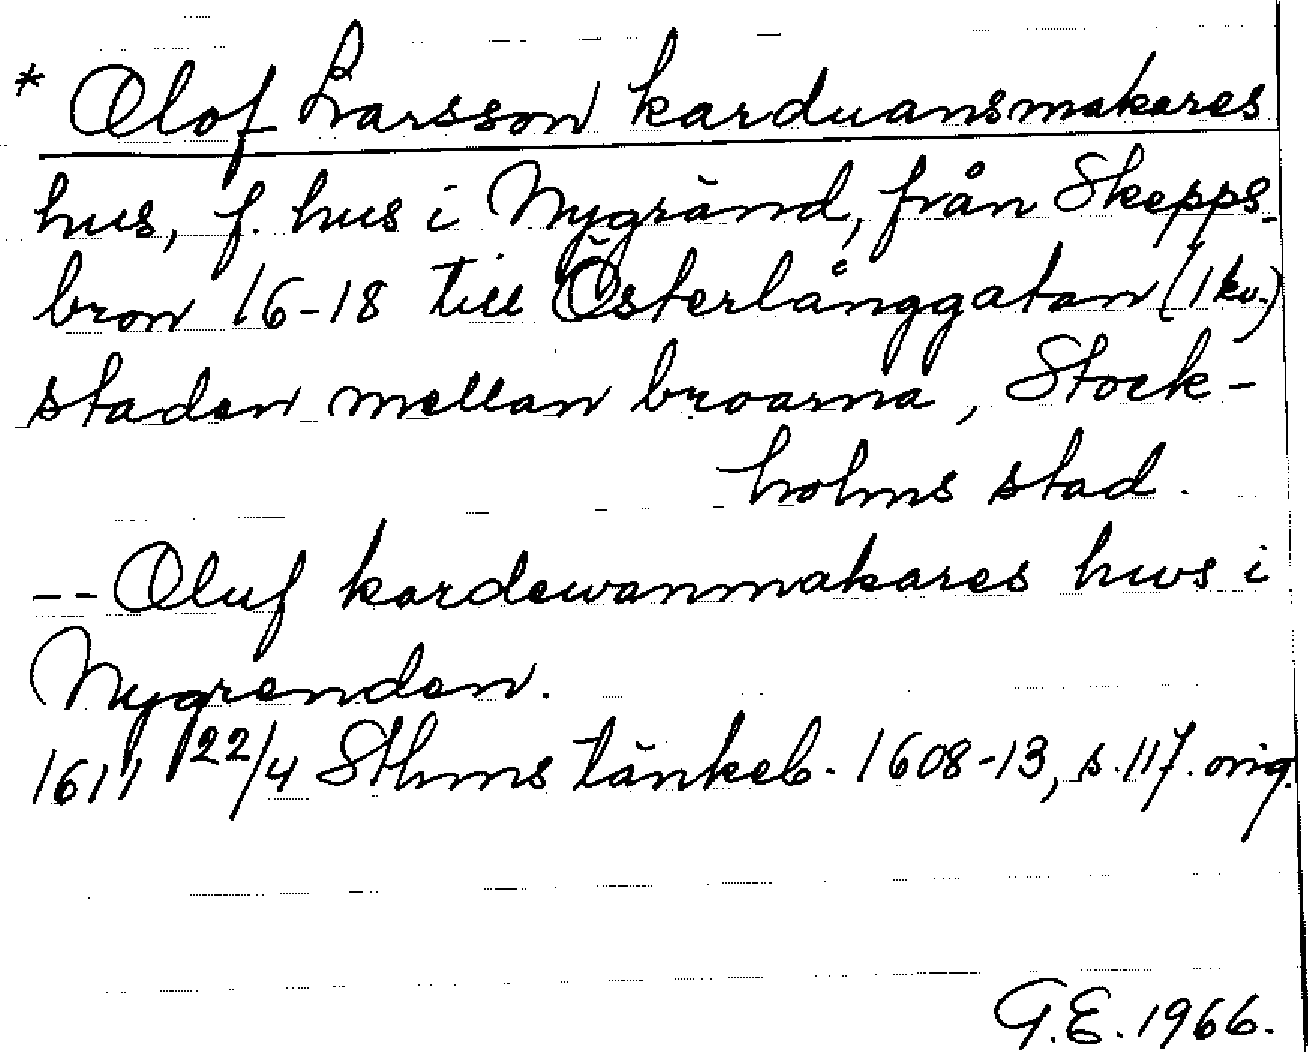 * Olof Larsson karduansmakares
hus, f. hus i Nygränd, från Skepps-
bron 16-18 till Österlånggatan (1 kv.)
staden mellan broarna, Stock-
holms stad.
-- Oluf kardewanmakares hws i
Nygrenden.
1611 22/4 Sthms tänkeb. 1608-13, s. 117. orig.
G.E. 1966.